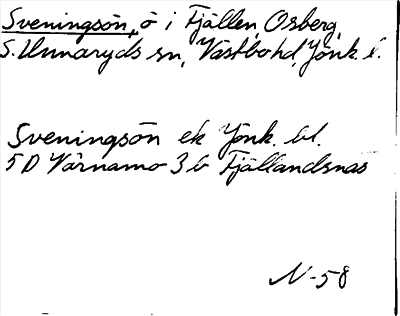 Sveningsön, ö i Fjällen, Osberg,
S. Unnaryds sn, Västbo hd, Jönk. l.
Sveningsön ek Jönk. bl.
5D Värnamo 3b Fjällandsnäs
N-58